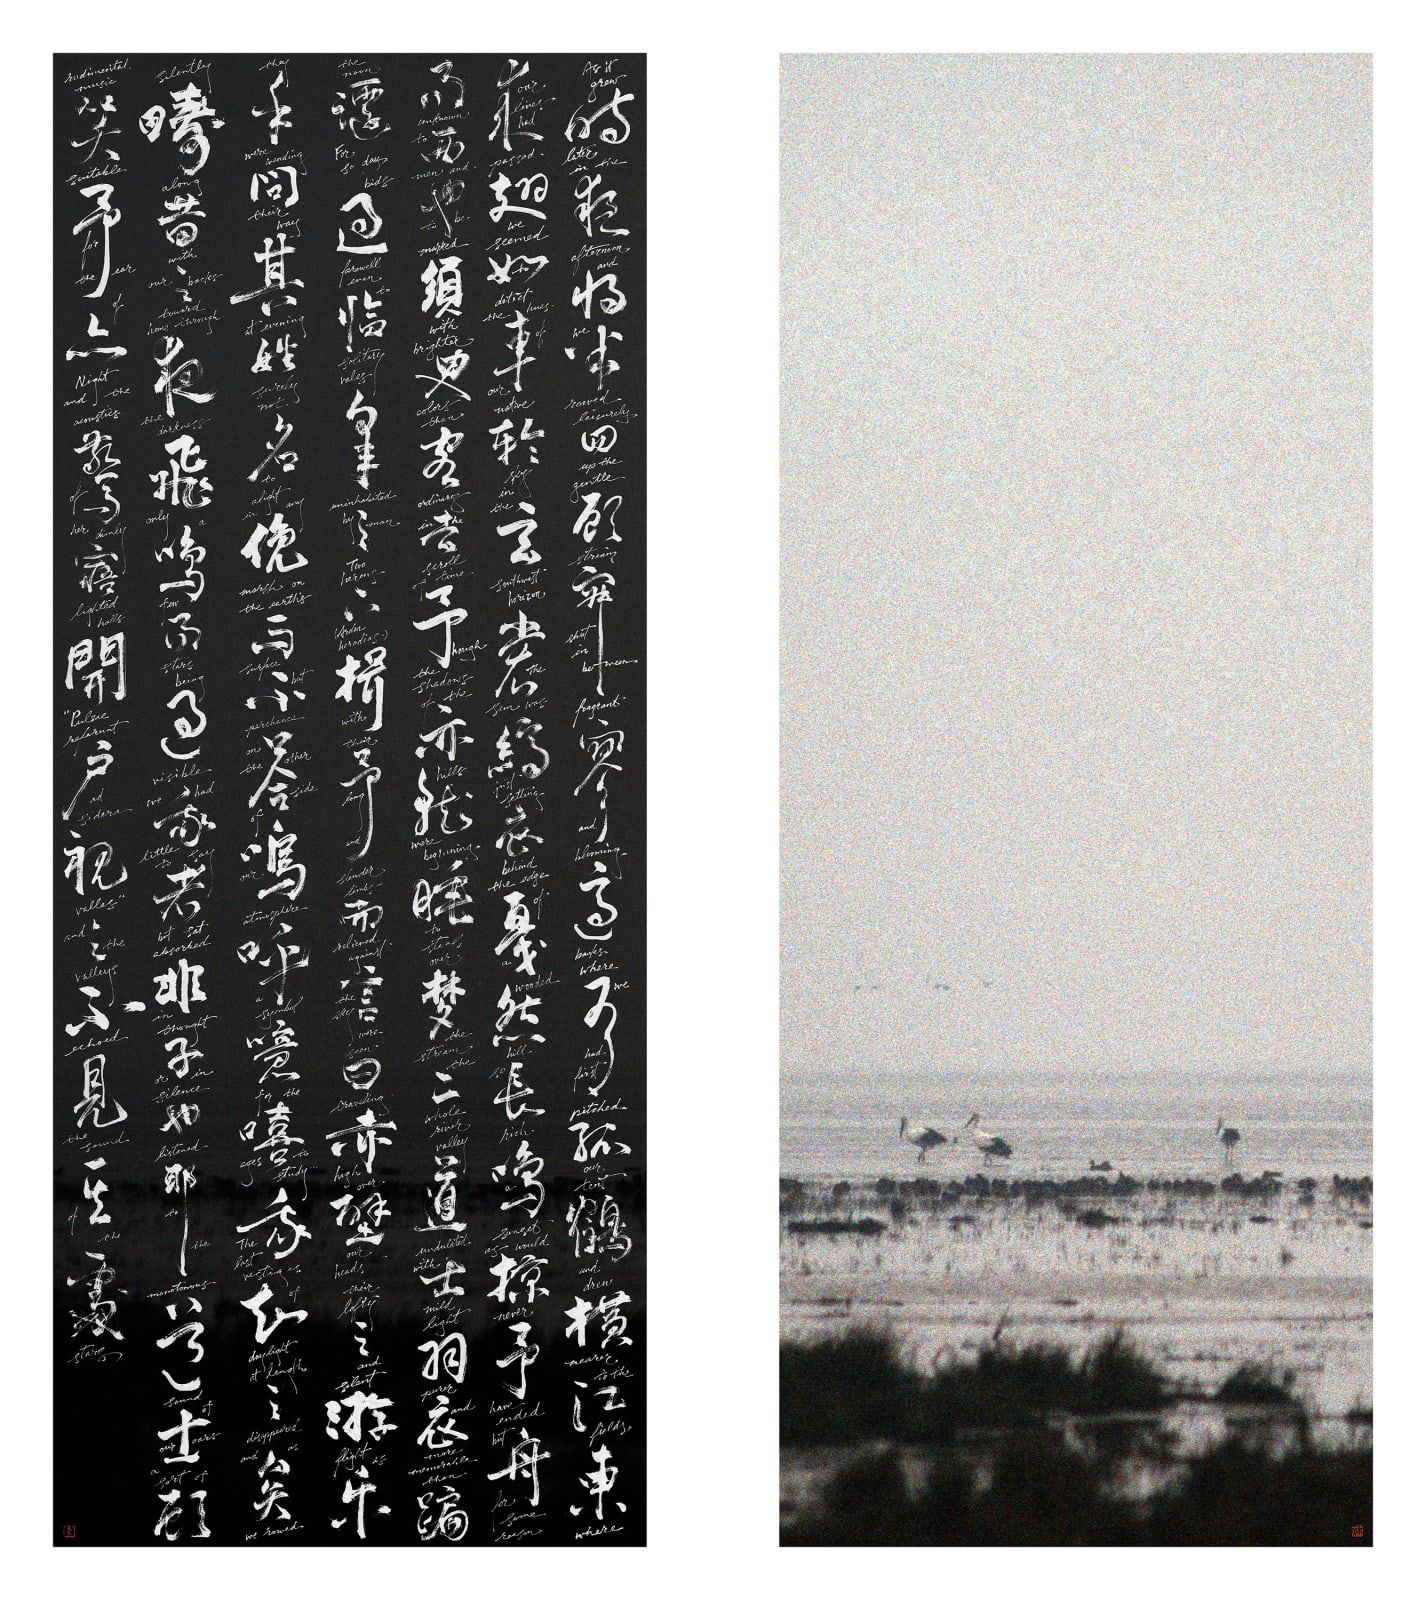 As it grew 時 later in the 夜 afternoon and 將 we 半 rowed leisurely 四 up the gentle 顧 stream 寂 shut in between fragrant 寥 and blooming 適 banks where 有 we had first pitched 孤 our tent 鶴 and drew 橫 nearer to the 江 fields 東 where
來 our lives had passed. 翅 we seemed to 如 detect the hues of 車 our native 輪 sky in the 玄 southwest horizon 裳 the sun was 縞 just setting 衣 behind the edge of 戛 a wooded 然 hill so 長 rich 鳴 a sunset as would 掠 never 予 have ended but 舟 for some reason
鳴 unknown to 而 men and 西 to be marked 也 須 with brighter 臾 colors than 客 ordinary in the 去 scroll of time. 予 Though the shadows of the 亦 hills 就 were beginning 睡 to steal over 夢 the stream the 二 whole river valley 道 undulated with 士 mild light 羽 purer and 衣 more memorable than 蹁
the noon. 躚 For so day bids 過 farewell even to 臨 solitary vales 皋 uninhabited by man. 之 Two herons 下 (Ardea herodias) 揖 with their 予 long and slender limbs 而 relieved against 言 the sky were seen 曰 traveling 赤 high over 壁 our heads their lofty 之 and silent 遊 flight as 樂
they 乎 were wending 問 their way 其 at evening 姓 surely not 名 to alight in any 俛 marsh on the earth's 而 surface but 不 perchance on the other side 答 of our 嗚 atmosphere 呼 a symbol 噫 for the 嘻 ages to study 我 The last vestiges of 知 daylight at length 之 disappeared and as 矣 we rowed
silently 疇 along 昔 with our backs 之 toward home through 夜 the darkness 飛 only a 鳴 few 而 stars being 過 visible we had 我 little to say 者 but sat absorbed 非 in thought 子 or in silence 也 listened 耶 to the monotonous 道 sound of 士 our oars a sort of 顧
rudimental music 笑 suitable 予 for the ear of 亦 Night and the acoustics 驚 of her dimly 寤 lighted halls 開 "Pulsae referunt 戶 ad sidera 視 valles" and 之 the valleys 不 echoed 見 the sound 其 of the 處 stars